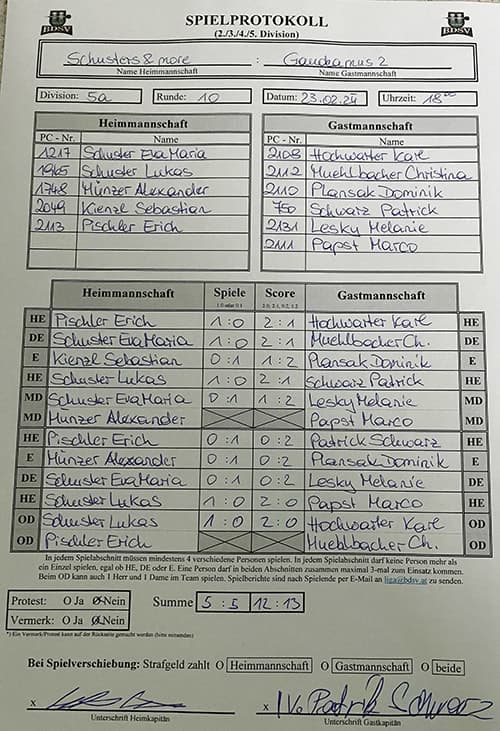 SPIELPROTOKOLL
(2./3./4./5. Division)
BDSV BDSV
Schusters & more : Gaudeamus 2
Name Heimmannschaft Name Gastmannschaft
Division: 5a Runde: 10 Datum: 23.02.24 Uhrzeit: 18⁰⁰
Heimmannschaft Gastmannschaft
PC - Nr. Name PC - Nr. Name
1217 Schuster Eva Maria 2108 Hochwarter Karl
1965 Schuster Lukas 2112 Muehlbacher Christina
1748 Münzer Alexander 2110 Plansak Dominik
2049 Kienzl Sebastian 750 Schwarz Patrick
2113 Pischler Erich 2131 Lesky Melanie
2111 Papst Marco
Heimmannschaft Spiele Score Gastmannschaft
1:0 oder 0:1 2:0, 2:1, 0:2, 1:2
HE Pischler Erich 1:0 2:1 Hochwarter Karl HE
DE Schuster Eva Maria 1:0 2:1 Muehlbacher Ch. DE
E Kienzl Sebastian 0:1 1:2 Plansak Dominik E
HE Schuster Lukas 1:0 2:1 Schwarz Patrick HE
MD Schuster Eva Maria 0:1 1:2 Lesky Melanie MD
MD Münzer Alexander Papst Marco MD
HE Pischler Erich 0:1 0:2 Patrick Schwarz HE
E Münzer Alexander 0:1 0:2 Plansak Dominik E
DE Schuster Eva Maria 0:1 0:2 Lesky Melanie DE
HE Schuster Lukas 1:0 2:0 Papst Marco HE
OD Schuster Lukas 1:0 2:0 Hochwarter Karl OD
OD Pischler Erich Muehlbacher Ch. OD
In jedem Spielabschnitt müssen mindestens 4 verschiedene Personen spielen. In jedem Spielabschnitt darf keine Person mehr als
ein Einzel spielen, egal ob HE, DE oder E. Eine Person darf in beiden Abschnitten zusammen maximal 3-mal zum Einsatz kommen.
Beim OD kann auch 1 Herr und 1 Dame im Team spielen. Spielberichte sind nach Spielende per E-Mail an liga@bdsv.at zu senden.
Protest: O Ja O Nein Summe 5:5 12:13
Vermerk: O Ja O Nein
*) Ein Vermerk/Protest kann auf der Rückseite gemacht werden (bitte mitsenden)
Bei Spielverschiebung: Strafgeld zahlt O Heimmannschaft O Gastmannschaft O beide
x x I.V. Patrik Schwarz
Unterschrift Heimkapitän Unterschrift Gastkapitän